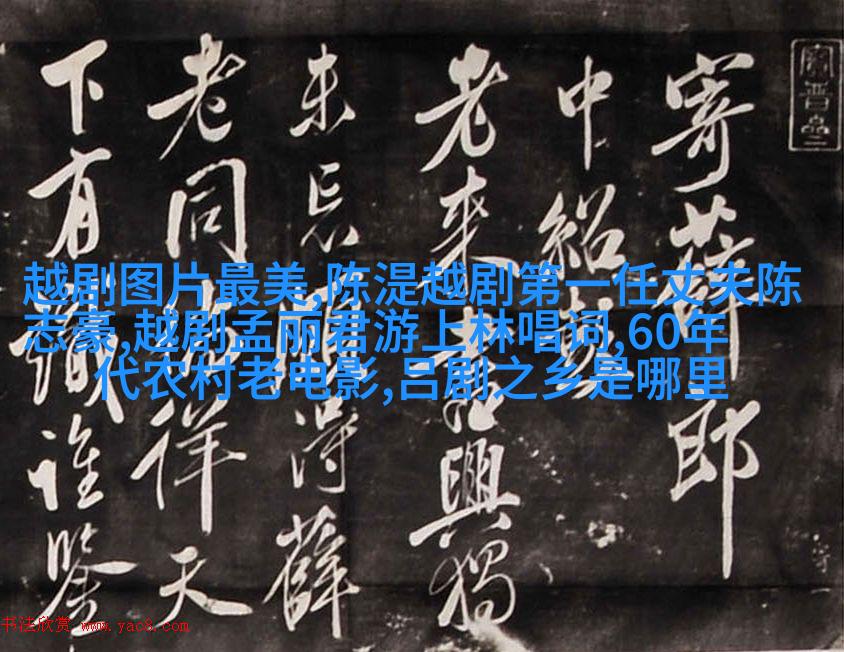 越剧图片最美,陈湜越剧第一任丈夫陈
志豪,越剧孟丽君游上林唱词,60年
代农村老电影,吕剧之乡是哪里
寄薛郎
中紹彭
老来書興獨
未忘得薛
老同徉天
下有識誰鑒
书法欣赏 www.yac8.com